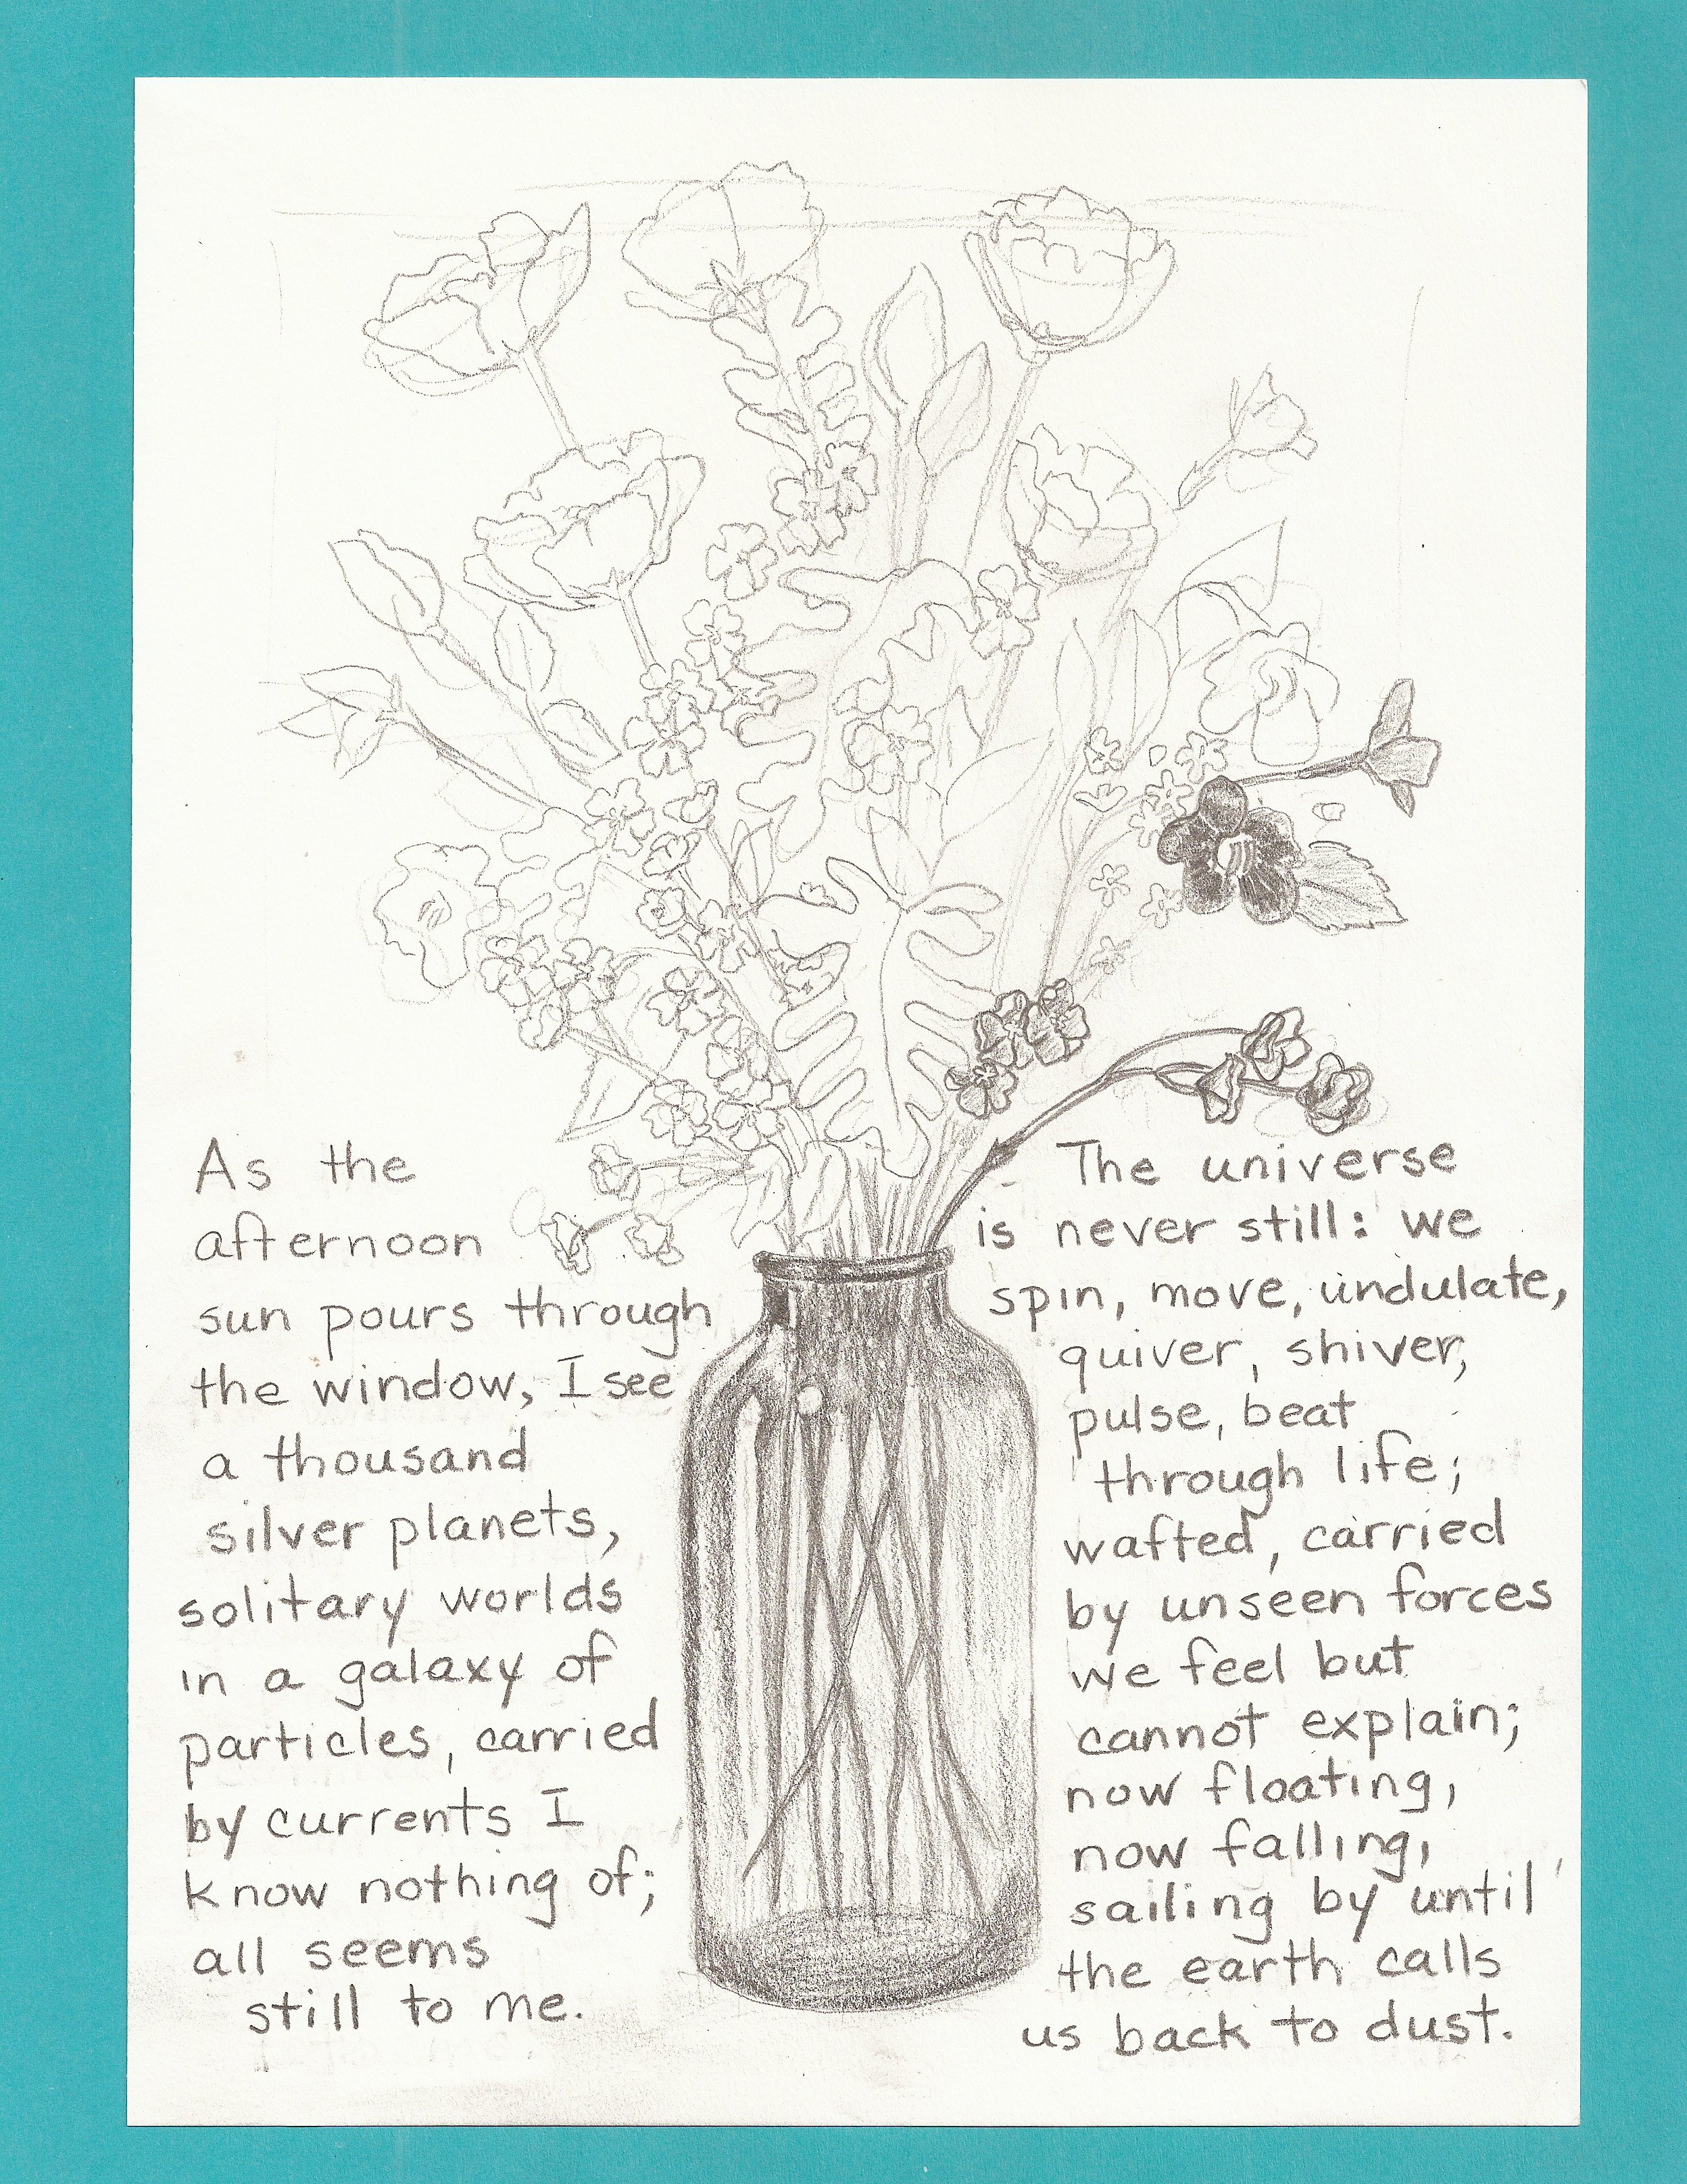 As the
afternoon
sun pours through
the window, I see
a thousand
silver planets,
solitary worlds
in a galaxy of
particles, carried
by currents I
know nothing of;
all seems
still to me.
The universe
is never still: we
spin, move, undulate,
quiver, shiver,
pulse, beat
through life;
wafted, carried
by unseen forces
we feel but
cannot explain;
now floating,
now falling,
sailing by until
the earth calls
us back to dust.